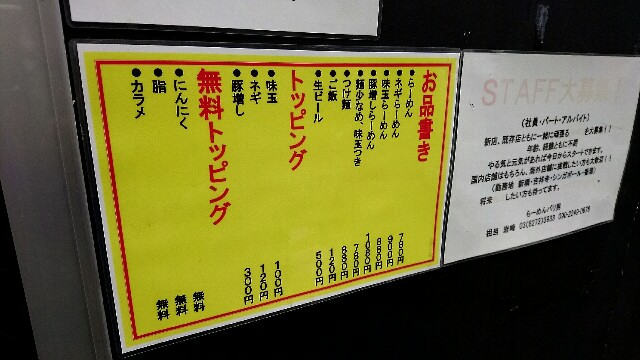 お品書き
・らーめん 780円
・ネギらーめん 900円
・味玉らーめん 880円
・豚増しらーめん 1080円
・麺少なめ、味玉つき 780円
・つけ麺 880円
・ご飯 120円
・生ビール 500円
トッピング
・味玉 100円
・ネギ 120円
・豚増し 300円
無料トッピング
・にんにく 無料
・脂 無料
・カラメ 無料
STAFF大募集
(社員・パート・アルバイト)
新店、既存店ともに一緒に頑張る を大募集!!
年齢、経験ともに不問
やる気と元気があれば今日からスタートできます。
国内店舗はもちろん、海外店舗に挑戦したい方も大歓迎!!
(勤務地 新橋・吉祥寺・シンガポール・香港)
将来 したい方も待ってます。
らーめんバリ男
担当 岩崎